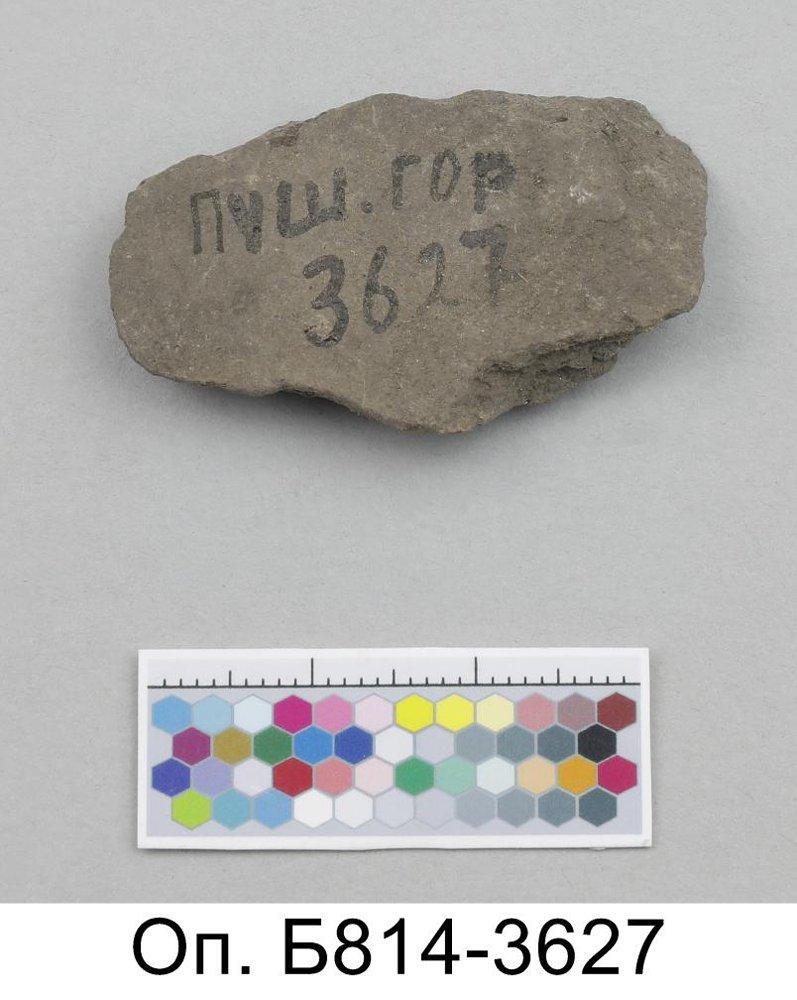 ПУШ.ГОР
3627
Оп. Б814-3627